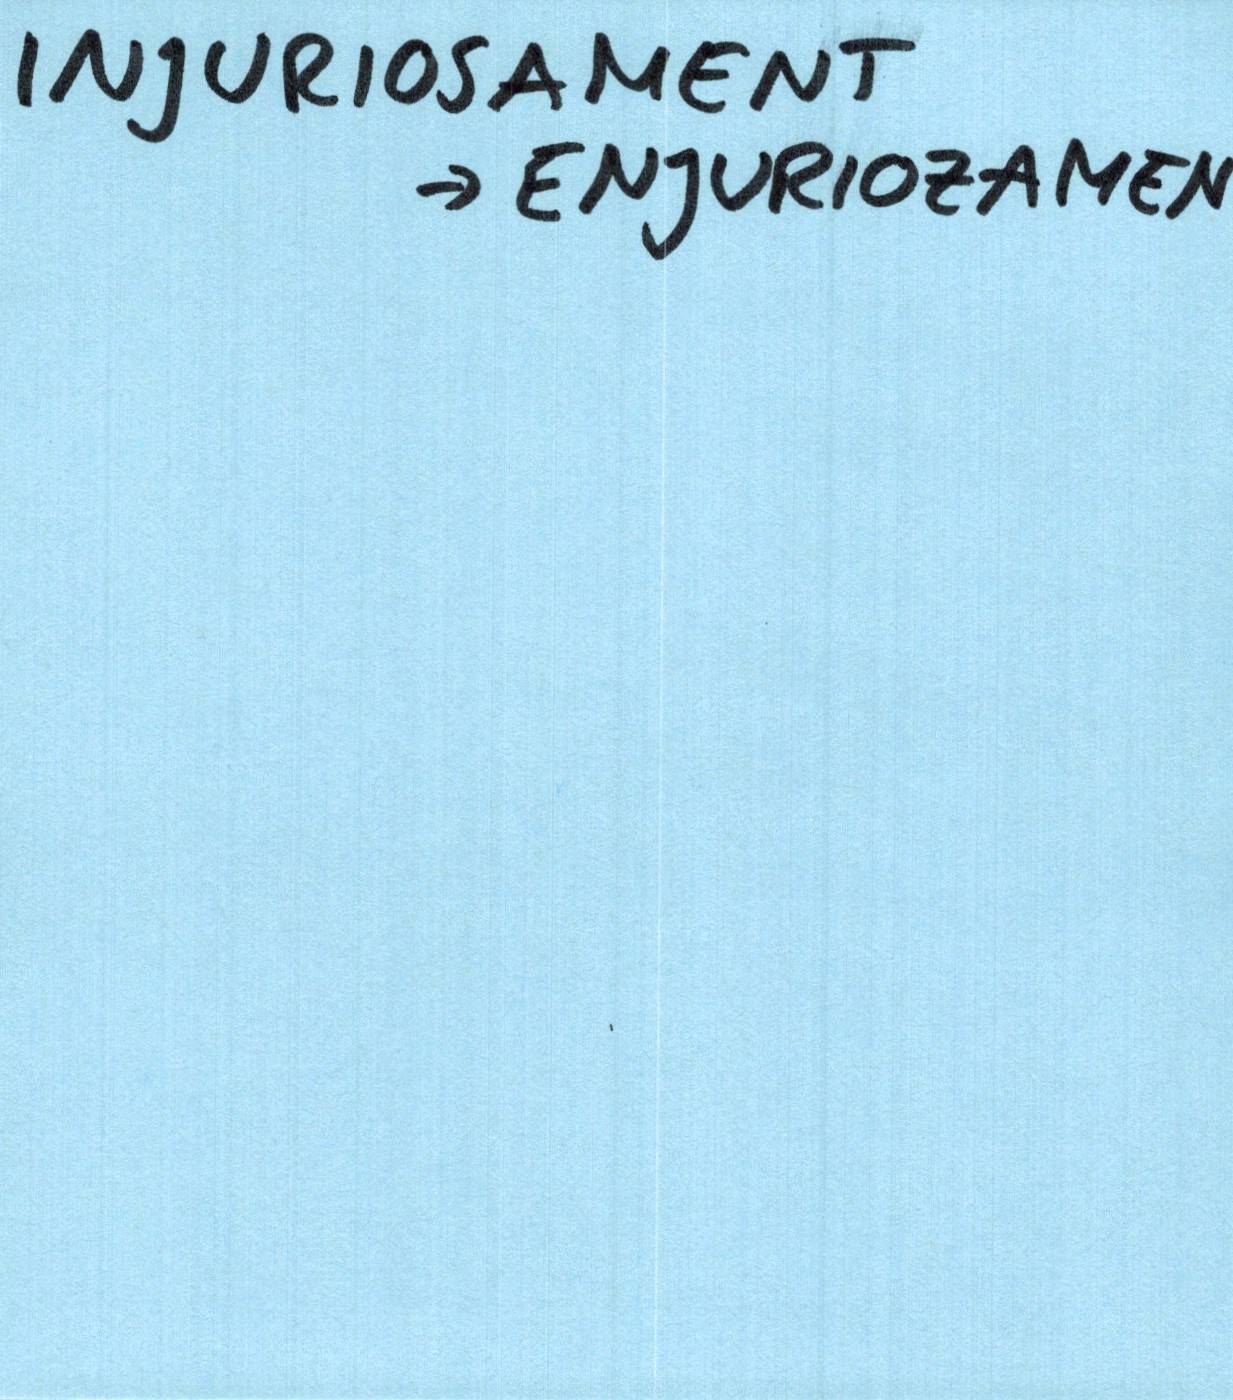 INJURIOSAMENT
→ ENJURIOZAMEN